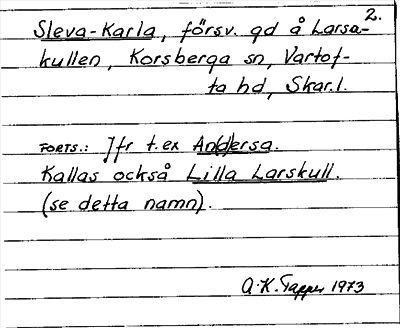 2.
Sleva-Karla, försv. gd å Larsa-
kullen, Korsberga sn, Vartof-
ta hd, Skar.l.
FORTS.: Jfr t.ex An(d)ersa.
Kallas också Lilla Larskull.
(se detta namn).
A.K. Tapper 1973